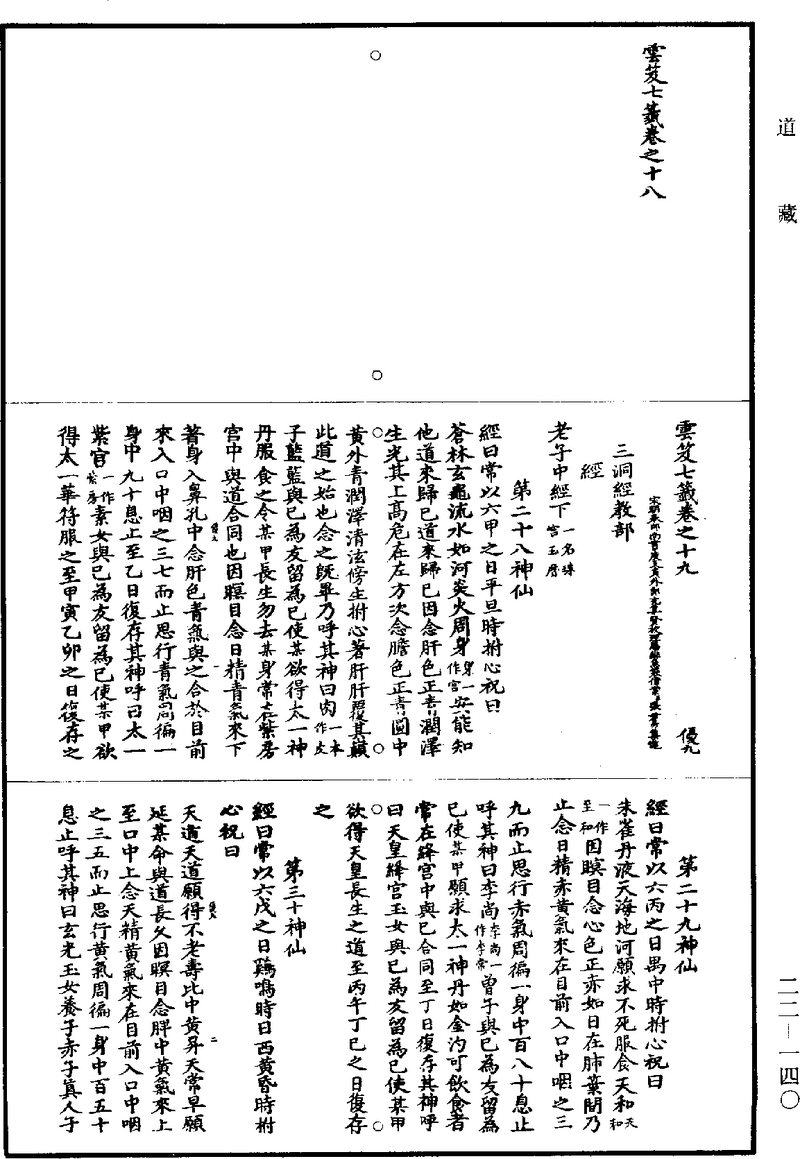 道藏
雲笈七籤卷之十八
雲笈七籤卷之十九 優九
三洞經教部
經
老子中經下一名珠宮玉曆
第二十八神仙
經曰常以六甲之日平旦時拊心祝曰
蒼林玄龜流水如河炎火周身身一作宮安能知
他道來歸已道來歸已因念肝色正青潤澤
生光其上高危在左方次念膽色正青圓中
黃外青潤澤清泫傍生拊心著肝肝覆其巔
此道之始也念之既畢乃呼其神曰肉一本作皮
子藍藍與已為友留為已使某欲得太一神
丹服食之令某甲長生勿去某身常在紫房
宮中與道合同也因瞑目念日精青氣來下
著身入鼻孔中念肝色青氣與之合於目前
來入口中咽之三七而止思行青氣周徧一
身中九十息止至乙日復存其神呼曰太一
紫宮一作紫房素女與已為友留為已使某甲欲
得太一華符服之至甲寅乙卯之日復存之
第二十九神仙
經曰常以六丙之日禺中時拊心祝曰
朱雀丹液天海地河願求不死服食天和天和
一作至和因瞑目念心色正赤如日在肺葉間乃
止念日精赤黃氣來在目前入口中咽之三
九而止思行赤氣周徧一身中百八十息止
呼其神曰李尚李尚一作李常曾子與已為友留為
已使某甲願求太一神丹如金汋可飲食者
常在絳宮中與已合同至丁日復存其神呼
曰天皇絳宮玉女與已為友留為已使某甲
欲得天皇長生之道至丙午丁巳之日復存
之
第三十神仙
經曰常以六戊之日鷄鳴時日西黃昏時拊
心祝曰
天道天道願得不老壽比中黃昇天常早願
延某命與道長久因瞑目念脾中黃氣來上
至口中上念天精黃氣來在目前入口中咽
之三五而止思行黃氣周徧一身中百五十
息止呼其神曰玄光玉女養子赤子真人子
二二－一四〇